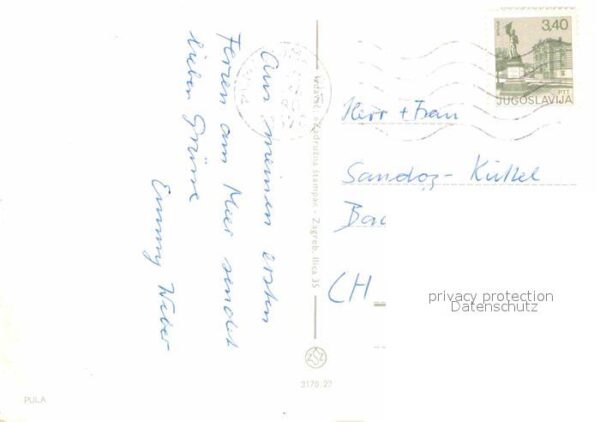 Aus meinen ersten
Ferien am Meer sendet
lieben Grüsse
Emmy Weber
PULA
Zadružna štampa - Zagreb, Ilica 35
3176 27
3,40
PTT
JUGOSLAVIJA
Herr + Frau
Sandoz - Küttel
CH
privacy protection
Datenschutz